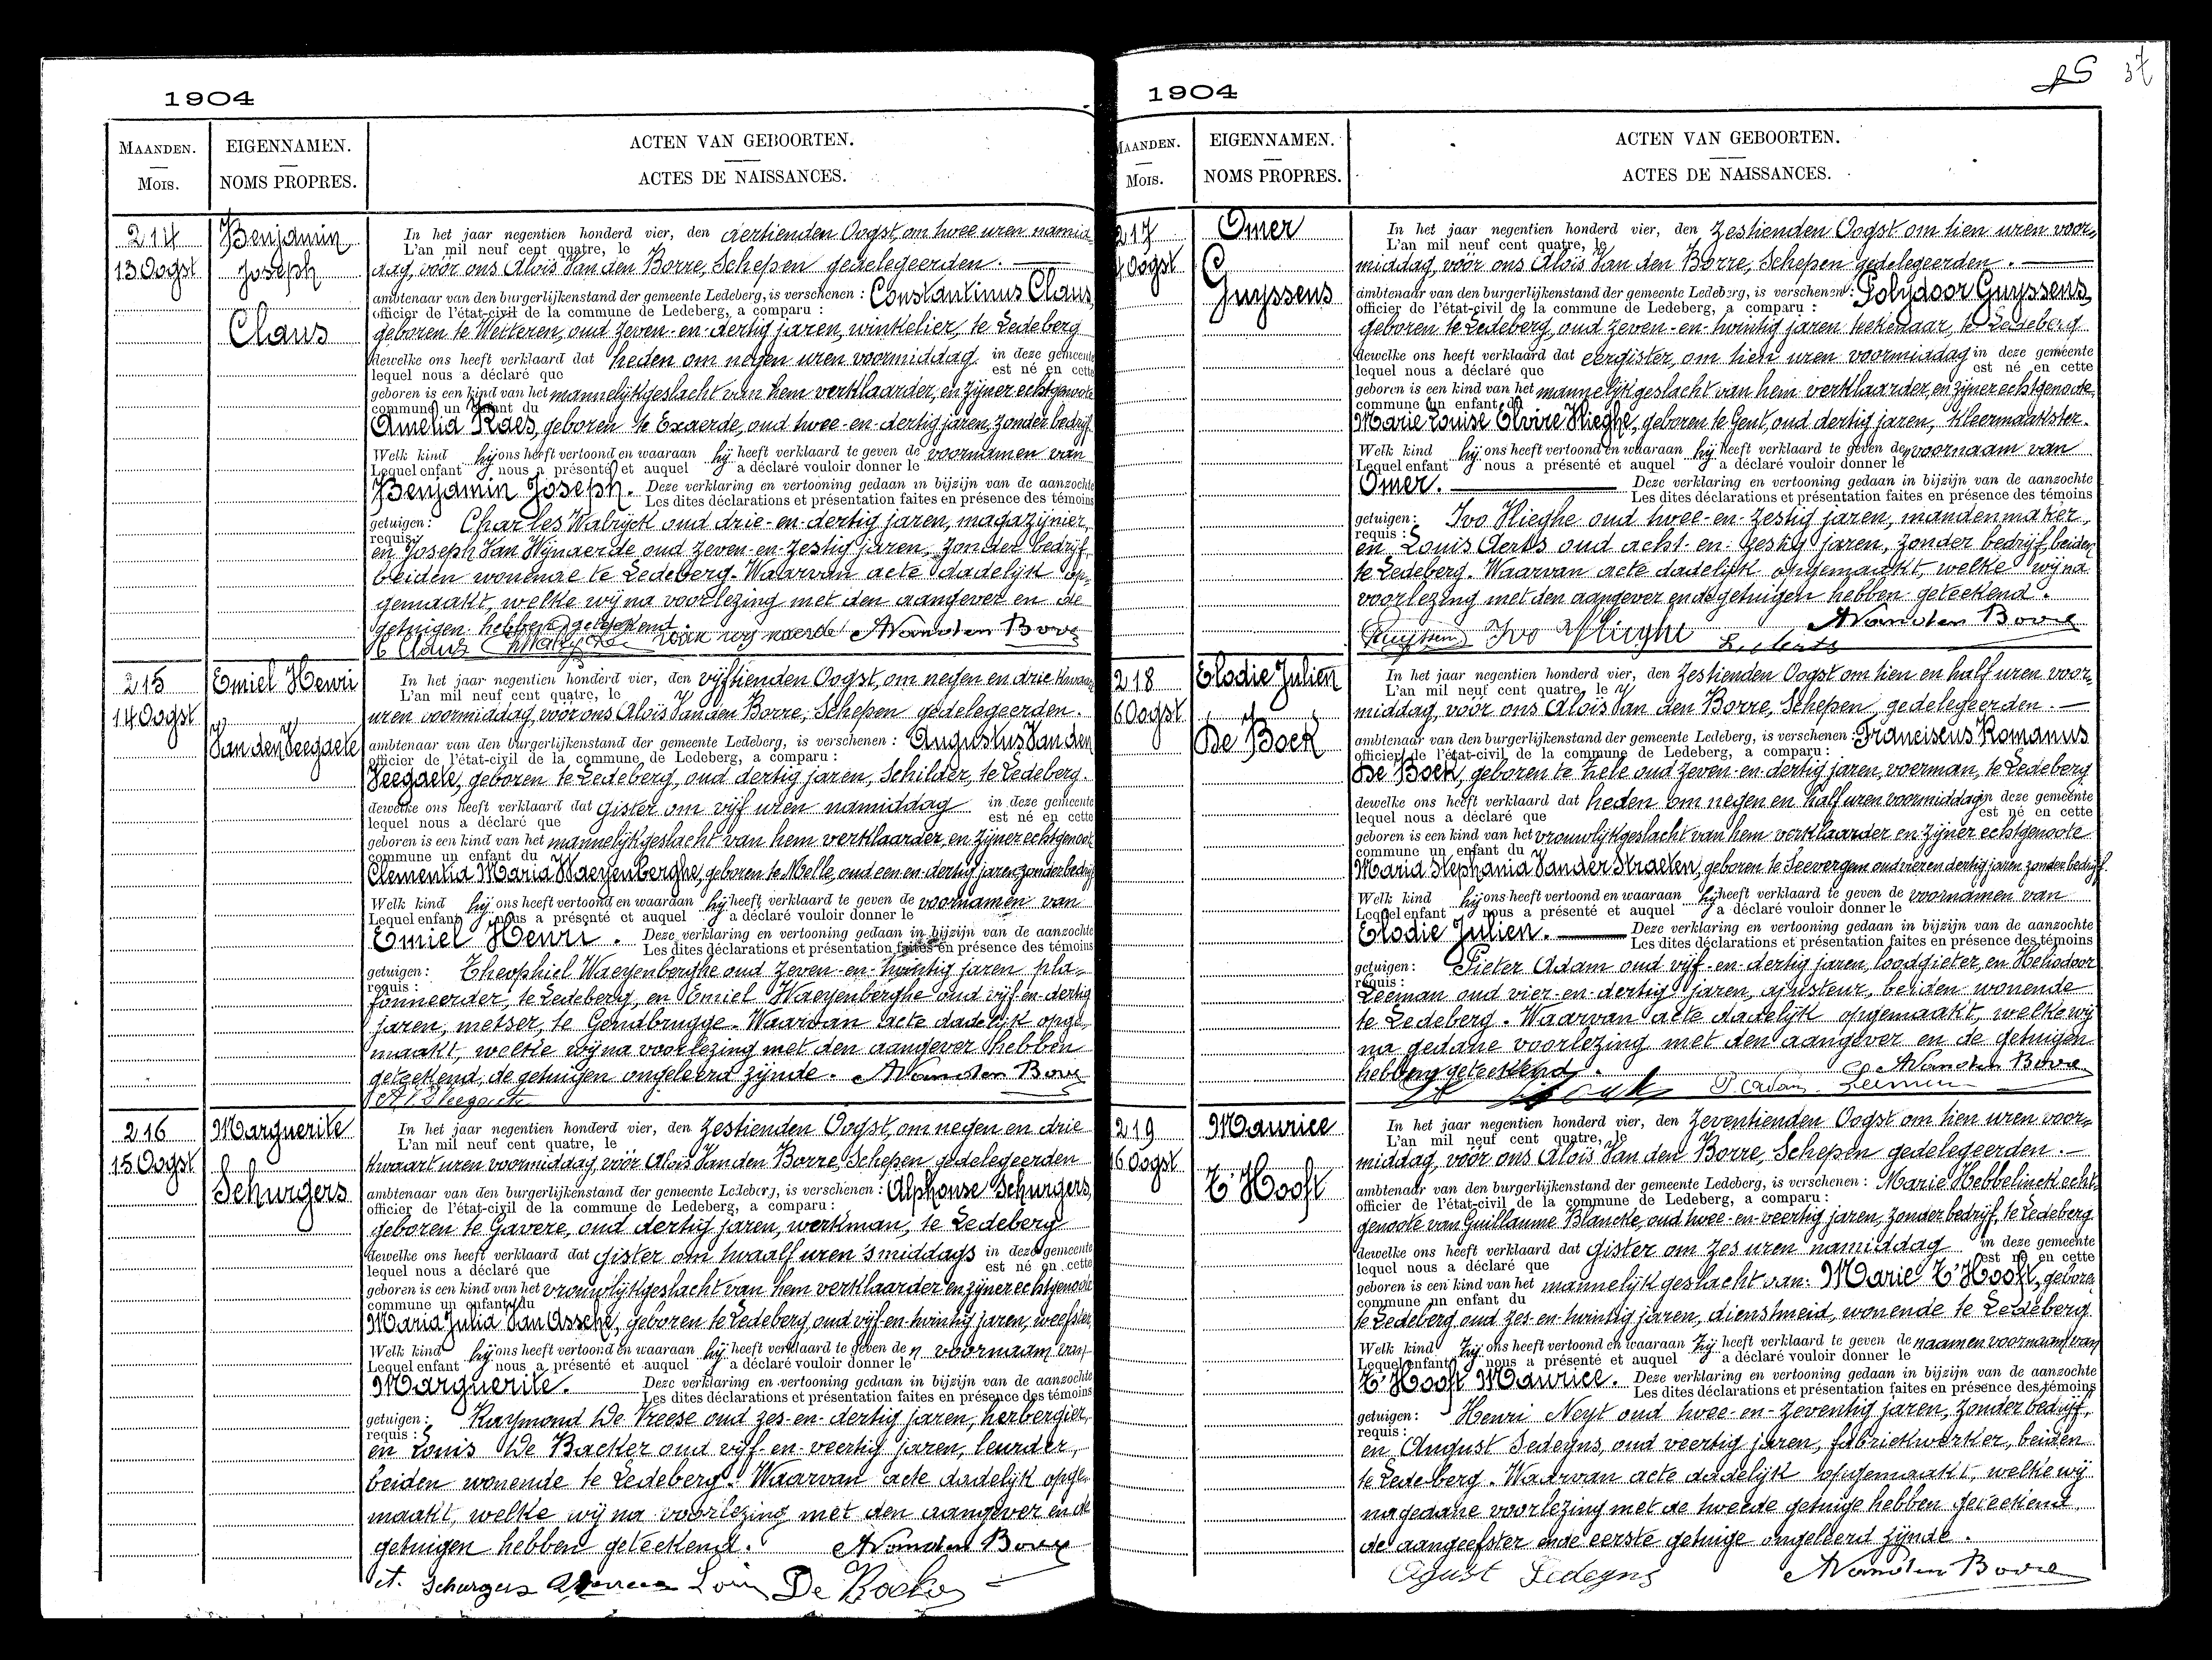 1904
MAANDEN.
MOIS.
EIGENNAMEN.
NOMS PROPRES.
ACTEN VAN GEBOORTEN.
ACTES DE NAISSANCES.
214
13 Oogst
Benjamin
Joseph
Claus
In het jaar negentien honderd vier, den dertienden Oogst, om twee uren namid-
L'an mil neuf cent quatre, le
dag, vóór ons Aloïs Van den Borre, Schepen gedelegeerden.
ambtenaar van den burgerlijkenstand der gemeente Ledeberg, is verschenen : Constantinus Claus,
officier de l'état-civil de la commune de Ledeberg, a comparu :
geboren te Wetteren, oud zeven-en-dertig jaren, winkelier, te Ledeberg
dewelke ons heeft verklaard dat heden om negen uren voormiddag in deze gemeente
lequel nous a déclaré que est né en cette
geboren is een kind van het mannelijk geslacht van hem verklaarder, en zijner echtgenoote
commune un enfant du
Amelia Raes, geboren te Exaerde, oud twee-en-dertig jaren, zonder bedrijf.
Welk kind hij ons heeft vertoond en waaraan hij heeft verklaard te geven de voornamen van
Lequel enfant nous a présenté et auquel a déclaré vouloir donner le
Benjamin Joseph. Deze verklaring en vertooning gedaan in bijzijn van de aanzochte
Les dites déclarations et présentation faites en présence des témoins
getuigen : Charles Walrijck oud drie-en-dertig jaren, magazijnier,
requis :
en Joseph Van Wijnaerde oud zeven-en-zestig jaren, zonder bedrijf,
beiden wonende te Ledeberg. Waarvan acte dadelijk op-
gemaakt, welke wij na voorlezing met den aangever en de
getuigen hebben geteekend.
C Claus A Van den Borre
215
14 Oogst
Emiel Henri
Van den Veegaete
In het jaar negentien honderd vier, den vijftienden Oogst, om negen en drie kwaart
L'an mil neuf cent quatre, le
uren voormiddag, vóór ons Aloïs Van den Borre, Schepen gedelegeerden.
ambtenaar van den burgerlijkenstand der gemeente Ledeberg, is verschenen : Augustus Van den
officier de l'état-civil de la commune de Ledeberg, a comparu :
Veegaete, geboren te Ledeberg, oud dertig jaren, Schilder, te Ledeberg.
dewelke ons heeft verklaard dat gister om vijf uren namiddag in deze gemeente
lequel nous a déclaré que est né en cette
geboren is een kind van het mannelijk geslacht van hem verklaarder en zijner echtgenoote
commune un enfant du
Clementia Maria Waeyenberghe, geboren te Melle, oud een-en-dertig jaren, zonder bedrijf
Welk kind hij ons heeft vertoond en waaraan hij heeft verklaard te geven de voornamen van
Lequel enfant nous a présenté et auquel a déclaré vouloir donner le
Emiel Henri. Deze verklaring en vertooning gedaan in bijzijn van de aanzochte
Les dites déclarations et présentation faites en présence des témoins
getuigen : Theophiel Waeyenberghe oud zeven-en-twintig jaren pla-
requis :
fonneerder, te Ledeberg, en Emiel Waeyenberghe oud vijf-en-dertig
jaren, metser, te Gendbrugge. Waarvan acte dadelijk opge-
maakt, welke wij na voorlezing met den aangever hebben
geteekend, de getuigen ongeleerd zijnde. A Van den Borre
216
15 Oogst
Marguerite
Schurgers
In het jaar negentien honderd vier, den zestienden Oogst, om negen en drie
L'an mil neuf cent quatre, le
kwaart uren voormiddag, vóór Aloïs Van den Borre, Schepen gedelegeerden
ambtenaar van den burgerlijkenstand der gemeente Ledeberg, is verschenen : Alphonse Schurgers,
officier de l'état-civil de la commune de Ledeberg, a comparu :
geboren te Gavere, oud dertig jaren, werkman, te Ledeberg
dewelke ons heeft verklaard dat gister om twaalf uren 's middags in deze gemeente
lequel nous a déclaré que est né en cette
geboren is een kind van het vrouwlijk geslacht van hem verklaarder en zijner echtgenoote
commune un enfant du
Maria Julia Van Assche, geboren te Ledeberg, oud vijf-en-twintig jaren, weefster,
Welk kind hij ons heeft vertoond en waaraan hij heeft verklaard te geven den voornaam van
Lequel enfant nous a présenté et auquel a déclaré vouloir donner le
Marguerite. Deze verklaring en vertooning gedaan in bijzijn van de aanzochte
Les dites déclarations et présentation faites en présence des témoins
getuigen : Raymond De Vreese oud zes-en-dertig jaren, herbergier,
requis :
en Louis De Backer oud vijf-en-veertig jaren, leurder,
beiden wonende te Ledeberg. Waarvan acte dadelijk opge-
maakt, welke wij na voorlezing met den aangever en de
getuigen hebben geteekend. A Van den Borre
A. Schurgers Louis De Backer
1904
37
MAANDEN.
MOIS.
EIGENNAMEN.
NOMS PROPRES.
ACTEN VAN GEBOORTEN.
ACTES DE NAISSANCES.
217
4 Oogst
Omer
Guyssens
In het jaar negentien honderd vier, den zestienden Oogst om tien uren voor-
L'an mil neuf cent quatre, le
middag, vóór ons Aloïs Van den Borre, Schepen gedelegeerden.
ambtenaar van den burgerlijkenstand der gemeente Ledeberg, is verschenen : Polydoor Guyssens,
officier de l'état-civil de la commune de Ledeberg, a comparu :
geboren te Ledeberg, oud zeven-en-twintig jaren teekenaar, te Ledeberg
dewelke ons heeft verklaard dat eergister, om tien uren voormiddag in deze gemeente
lequel nous a déclaré que est né en cette
geboren is een kind van het mannelijk geslacht van hem verklaarder, en zijner echtgenoote,
commune un enfant du
Marie Louise Elvire Vlieghe, geboren te Gent, oud dertig jaren, kleermaakster.
Welk kind hij ons heeft vertoond en waaraan hij heeft verklaard te geven den voornaam van
Lequel enfant nous a présenté et auquel a déclaré vouloir donner le
Omer. Deze verklaring en vertooning gedaan in bijzijn van de aanzochte
Les dites déclarations et présentation faites en présence des témoins
getuigen : Ivo Vlieghe oud twee-en-zestig jaren, mandenmaker,
requis :
en Louis Aerts oud acht-en-zestig jaren, zonder bedrijf, beiden
te Ledeberg. Waarvan acte dadelijk opgemaakt, welke wij na
voorlezing met den aangever en de getuigen hebben geteekend.
Guyssens Ivo Vlieghe L. Aerts A Van den Borre
218
6 Oogst
Elodie Julien
De Boek
In het jaar negentien honderd vier, den zestienden Oogst om tien en half uren voor-
L'an mil neuf cent quatre, le
middag, vóór ons Aloïs Van den Borre, Schepen gedelegeerden.
ambtenaar van den burgerlijkenstand der gemeente Ledeberg, is verschenen : Franciscus Romanus
officier de l'état-civil de la commune de Ledeberg, a comparu :
De Boek, geboren te Zele oud zeven-en-dertig jaren, voerman, te Ledeberg
dewelke ons heeft verklaard dat heden om negen en half uren voormiddag in deze gemeente
lequel nous a déclaré que est né en cette
geboren is een kind van het vrouwlijk geslacht van hem verklaarder en zijner echtgenoote
commune un enfant du
Maria Stephania Van der Straeten, geboren te Seevergem oud vier en dertig jaren zonder bedrijf
Welk kind hij ons heeft vertoond en waaraan hij heeft verklaard te geven de voornamen van
Lequel enfant nous a présenté et auquel a déclaré vouloir donner le
Elodie Julien. Deze verklaring en vertooning gedaan in bijzijn van de aanzochte
Les dites déclarations et présentation faites en présence des témoins
getuigen : Pieter Adam oud vijf-en-dertig jaren, loodgieter, en Heliodoor
requis :
Leeman oud vier-en-dertig jaren, ajusteur, beiden wonende
te Ledeberg. Waarvan acte dadelijk opgemaakt, welke wij
na gedane voorlezing met den aangever en de getuigen
hebben geteekend. A Van den Borre
P. Adam Leeman
219
16 Oogst
Maurice
T'Hooft
In het jaar negentien honderd vier, den zeventienden Oogst om tien uren voor-
L'an mil neuf cent quatre, le
middag, vóór ons Aloïs Van den Borre, Schepen gedelegeerden.
ambtenaar van den burgerlijkenstand der gemeente Ledeberg, is verschenen : Marie Hebbelinck echt-
officier de l'état-civil de la commune de Ledeberg, a comparu :
genoote van Guillaume Blancke, oud twee-en-veertig jaren, zonder bedrijf, te Ledeberg
dewelke ons heeft verklaard dat gister om zes uren namiddag in deze gemeente
lequel nous a déclaré que est né en cette
geboren is een kind van het mannelijk geslacht van: Marie T'Hooft, geboren
commune un enfant du
te Ledeberg oud zes-en-twintig jaren, dienstmeid, wonende te Ledeberg
Welk kind zij ons heeft vertoond en waaraan zij heeft verklaard te geven de naam en voornaam van
Lequel enfant nous a présenté et auquel a déclaré vouloir donner le
T'Hooft Maurice. Deze verklaring en vertooning gedaan in bijzijn van de aanzochte
Les dites déclarations et présentation faites en présence des témoins
getuigen : Henri Neyt oud twee-en-zeventig jaren, zonder bedrijf,
requis :
en August Sedeyns, oud veertig jaren, fabriekwerker, beiden
te Ledeberg. Waarvan acte dadelijk opgemaakt, welke wij
na gedane voorlezing met de tweede getuige hebben geteekend,
de aangeefster en de eerste getuige ongeleerd zijnde.
Agust Sedeyns A Van den Borre